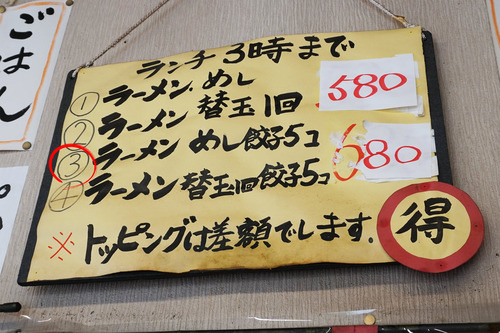 ごはん
ランチ3時まで
① ラーメン、めし
② ラーメン 替玉1回
580
③ ラーメン めし餃子5コ
④ ラーメン 替玉1回餃子5コ
680
※トッピングは差額でします。
得